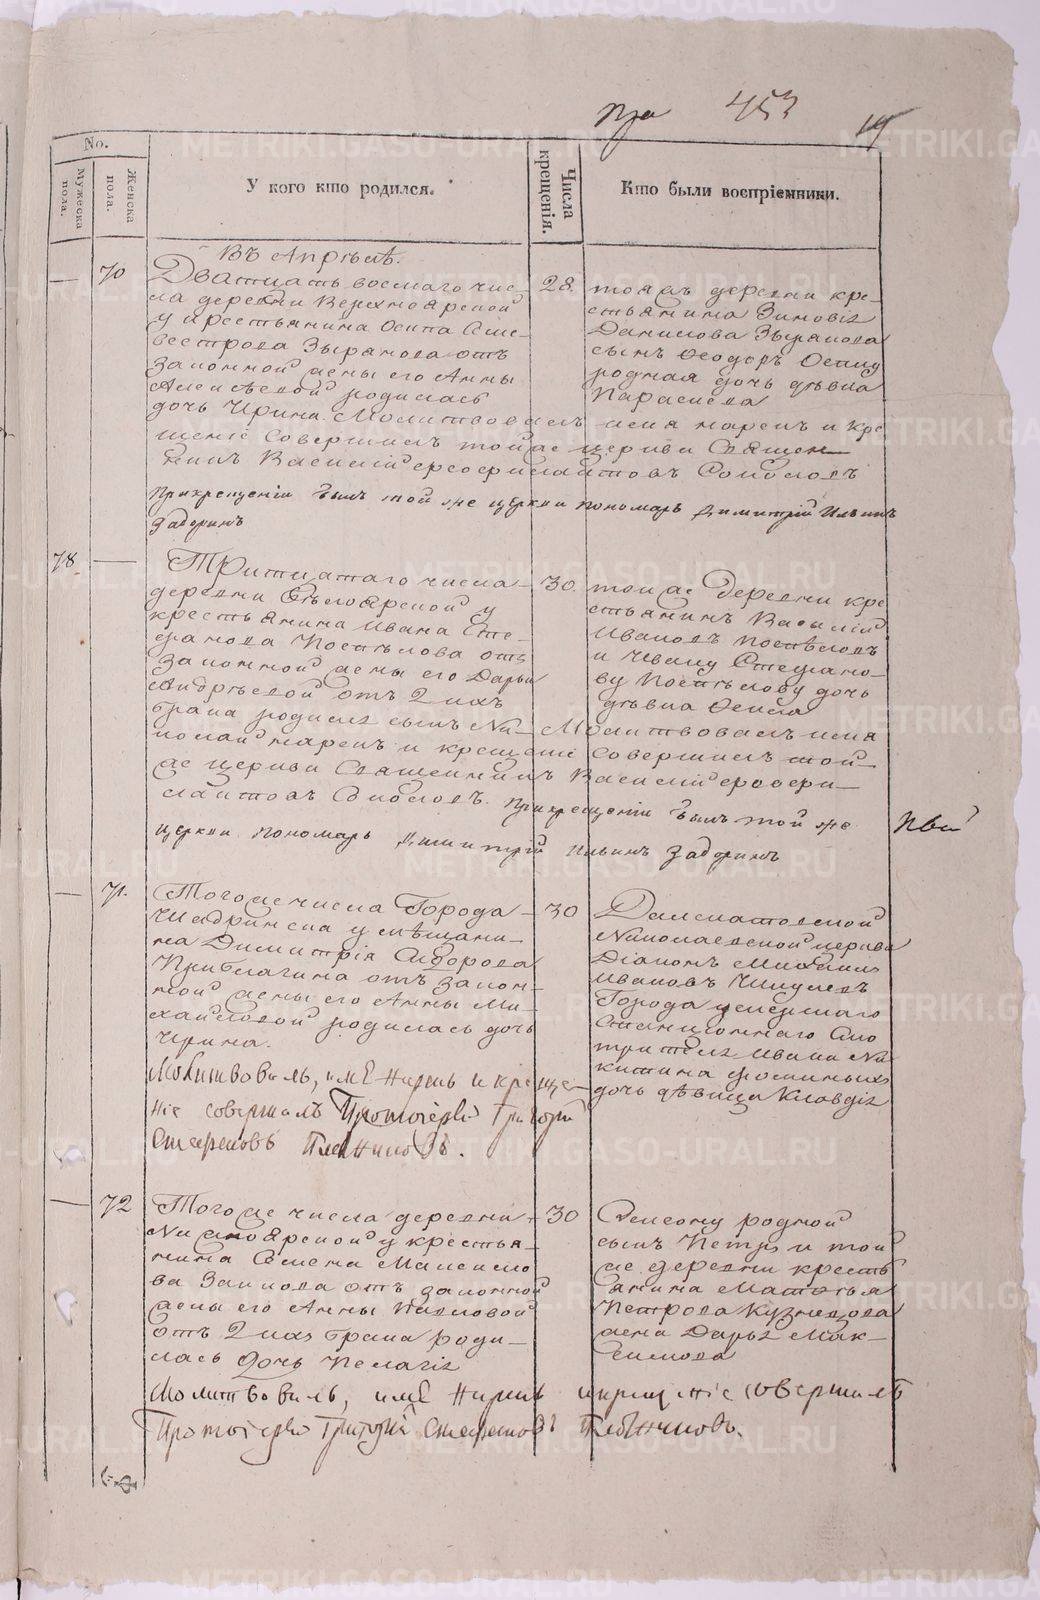 453
No.
Мужеска пола.
Женска пола.
У кого кто родился.
Числа крещенія.
Кто были воспріемники.
Въ Апрѣлѣ.
70
Дватцать восмаго чис-
ла деревни Верхнеярской
у крестьянина Осипа Сили-
вестрова Зырянова отъ
законной жены его Анны
Алексѣевой родилась
дочь Ирина. Молитвовалъ имя нарекъ и кре
щеніе совершилъ той же церкви Священ
никъ Василій Соколовъ
При крещеніи былъ той же церкви пономарь Димитрій Ильинъ
Задоринъ
28.
тояжъ деревни кре-
стьянина Зиновія
Данилова Зырянова
сынъ Феодоръ Осипу
родная дочь дѣвка
Параскева
78.
Тритцатаго числа
деревни Бѣлоярской у
крестьянина Ивана Сте-
фанова Поспѣлова отъ
законной жены его Дарьи
Андрѣевой отъ 2хъ
брака родился сынъ Ни-
колай нарекъ и крещеніе совершилъ той
же церкви Священникъ Василій
Соколовъ. При крещеніи былъ той же
церкви пономарь Димитрій Ильинъ Задоринъ
30.
той же деревни кре
стьянинъ Василій
Ивановъ Поспѣловъ
и Ивану Стефано-
ву Поспѣлову дочь
дѣвка
Молитвовалъ имя
71.
Тогоже числа Города
Шадринска у мѣщани-
на Димитрія Сидорова
отъ закон-
ной жены его Анны Ми-
хайловой родилась дочь
Ирина.
Молитвовалъ, имя нарекъ и креще-
ніе совершалъ Протоіерей Григорій
Стефановъ Плотниковъ.
30
Далматовской
Николаевской церкви
Діаконъ Михаилъ
Ивановъ
Города
станціоннаго смо
трителя Ивана Ни
китина
дочь дѣвица Клавдія
72
Того же числа деревни
у крестья-
нина Семена Максимо
ва Заикова отъ законной
жены его Анны Павловой
отъ 2хъ брака роди-
лась дочь Пелагія
Молитвовалъ, имя нарекъ и крещеніе совершалъ
Протоіерей Григорій Стефановъ Плотниковъ.
30
Семену родной
сынъ Петръ и той
же деревни кресть
янина Матфѣя
Петрова Кузнецова
жена Дарья Мак-
симова
METRIKI.GASO-URAL.RU